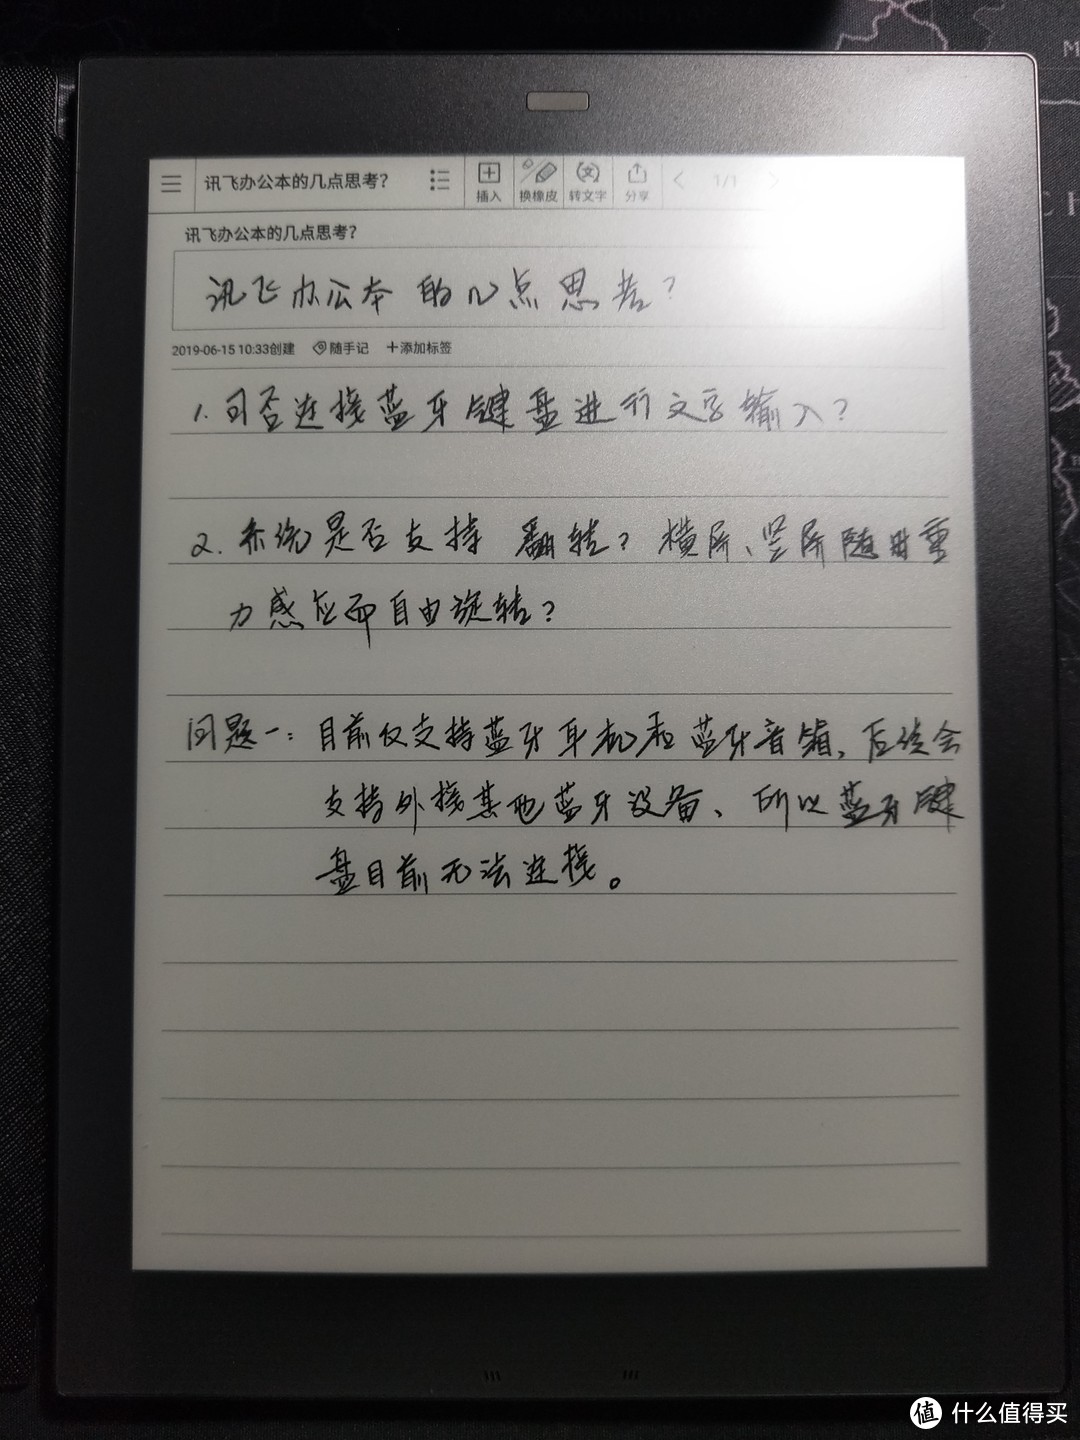 讯飞办公本的几点思考？
插入 换橡皮 转文字 分享 1/1
讯飞办公本的几点思考？
讯飞办公本的几点思考？
2019-06-15 10:33创建 随手记 +添加标签
1. 可否连接蓝牙键盘进行文字输入？
2. 系统是否支持翻转？横屏、竖屏随时重
力感应而自由旋转？
问题一：目前仅支持蓝牙耳机和蓝牙音箱，后续会
支持外接其他蓝牙设备、所以蓝牙键
盘目前无法连接。
值 什么值得买